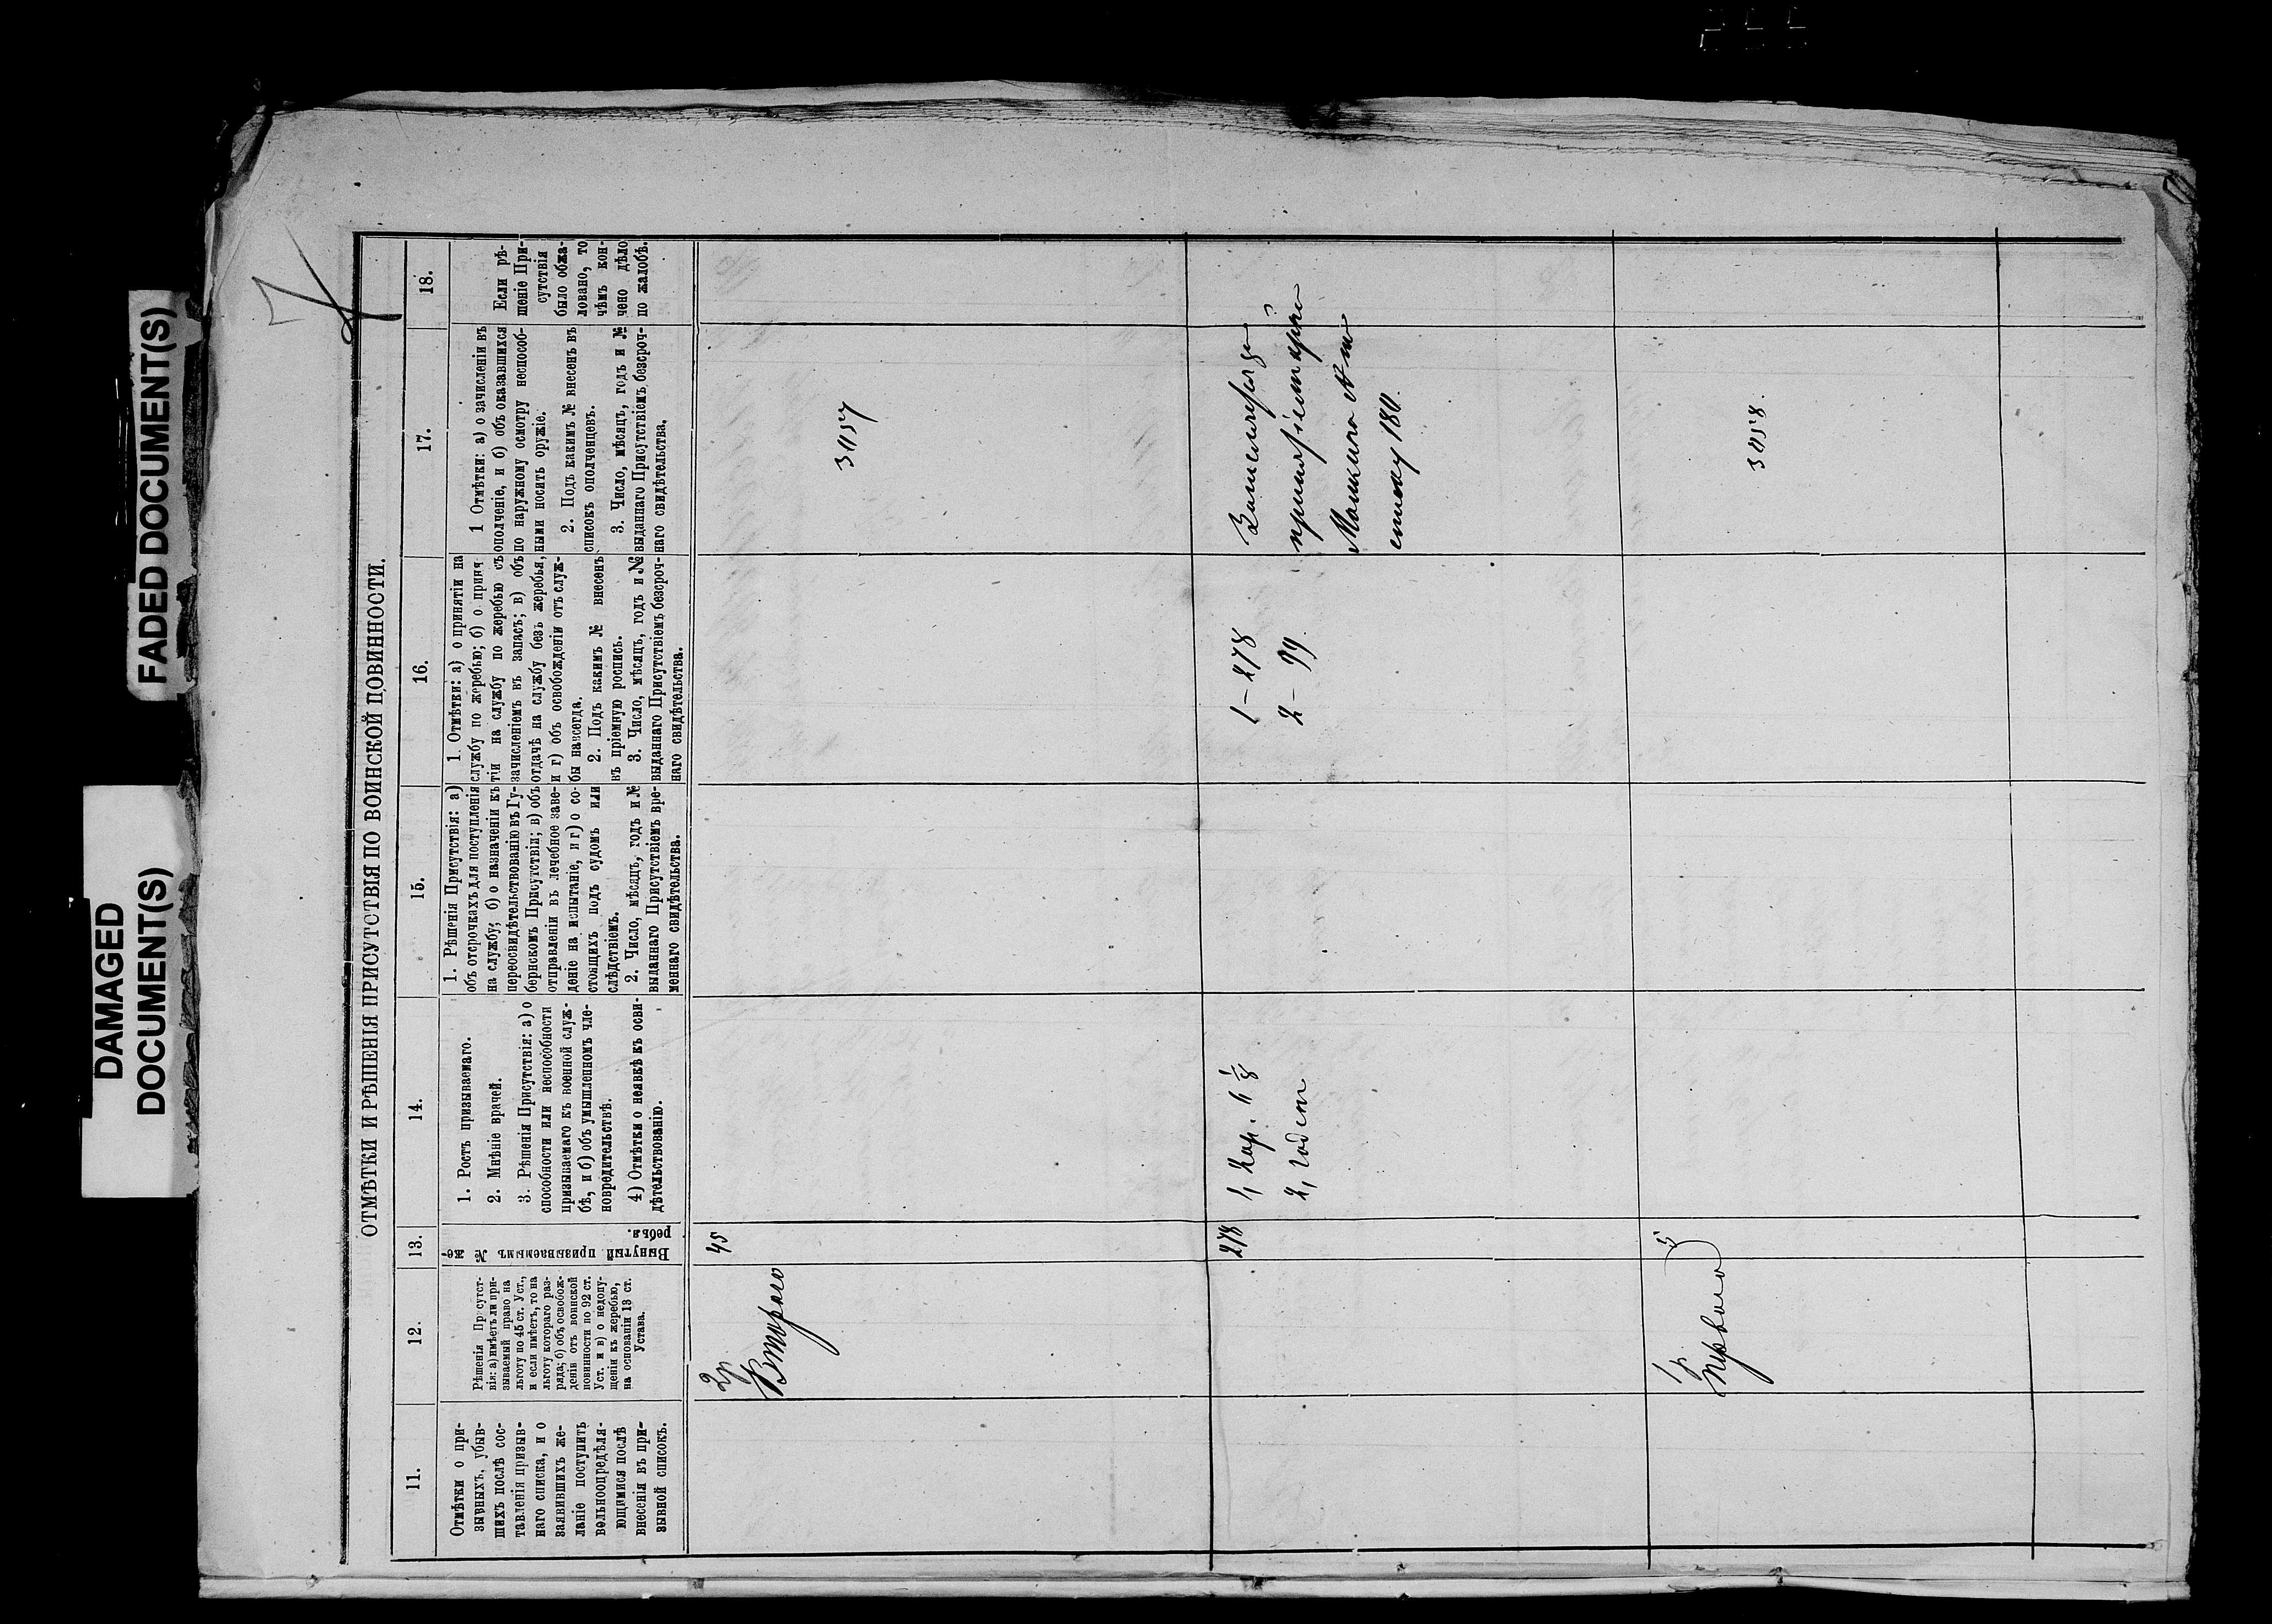 FADED DOCUMENT(S)
DAMAGED
DOCUMENT(S)
ОТМѢТКИ И РѢШЕНІЯ ПРИСУТСТВІЯ ПО ВОИНСКОЙ ПОВИННОСТИ.
11.
Отмѣтки о при-
зывныхъ, убыв-
шихъ послѣ сос-
тавленія призыв-
наго списка, и о
заявившихъ же-
ланіе поступить
вольноопредѣля-
ющимися послѣ
внесенія въ при-
зывной списокъ.
12.
Рѣшенія Присутст-
вія: а) имѣетъ ли при-
зываемый право на
льготу по 45 ст. Уст.,
и если имѣетъ, то на
льготу котораго раз-
ряда; б) объ освобож-
деніи отъ воинской
повинности по 92 ст.
Уст. и в) о недопу-
щеніи къ жеребью,
на основаніи 13 ст.
Устава.
13.
Вынутый призываемымъ № же-
ребья.
14.
1. Ростъ призываемаго.
2. Мнѣніе врачей.
3. Рѣшенія Присутствія: а) о
способности или неспособности
призываемаго къ военной служ-
бѣ, и б) объ умышленномъ чле-
новредительствѣ.
4) Отмѣтки о неявкѣ къ осви-
дѣтельствованію.
15.
1. Рѣшенія Присутствія: а)
объ отсрочкахъ для поступленія
на службу; б) о назначеніи къ
переосвидѣтельствованію въ Гу-
бернскомъ Присутствіи; в) объ
отправленіи въ лечебное заве-
деніе на испытаніе, и г) о со-
стоящихъ подъ судомъ или
слѣдствіемъ.
2. Число, мѣсяцъ, годъ и №
выданнаго Присутствіемъ вре-
меннаго свидѣтельства.
16.
1. Отмѣтки: а) о принятіи на
службу по жеребью; б) о приня-
тіи на службу по жеребью съ
зачисленіемъ въ запасъ; в) объ
отдачѣ на службу безъ жеребья,
и г) объ освобожденіи отъ служ-
бы навсегда.
2. Подъ какимъ № внесенъ
въ пріемную роспись.
3. Число, мѣсяцъ, годъ и №
выданнаго Присутствіемъ безсроч-
наго свидѣтельства.
17.
1 Отмѣтки: а) о зачисленіи въ
ополченіе, и б) объ оказавшихся
по наружному осмотру неспособ-
ными носить оружіе.
2. Подъ какимъ № внесенъ въ
списокъ ополченцевъ.
3. Число, мѣсяцъ, годъ и №
выданнаго Присутствіемъ безсроч-
наго свидѣтельства.
18.
Если рѣ-
шеніе При-
сутствія
было обжа-
ловано, то
чѣмъ кон-
чено дѣло
по жалобѣ.
2р.
Втораго
45
278
1, 2 ар.
2, годен
1 – 278
2 – 99.
списку 180.
1р.
Перваго
5